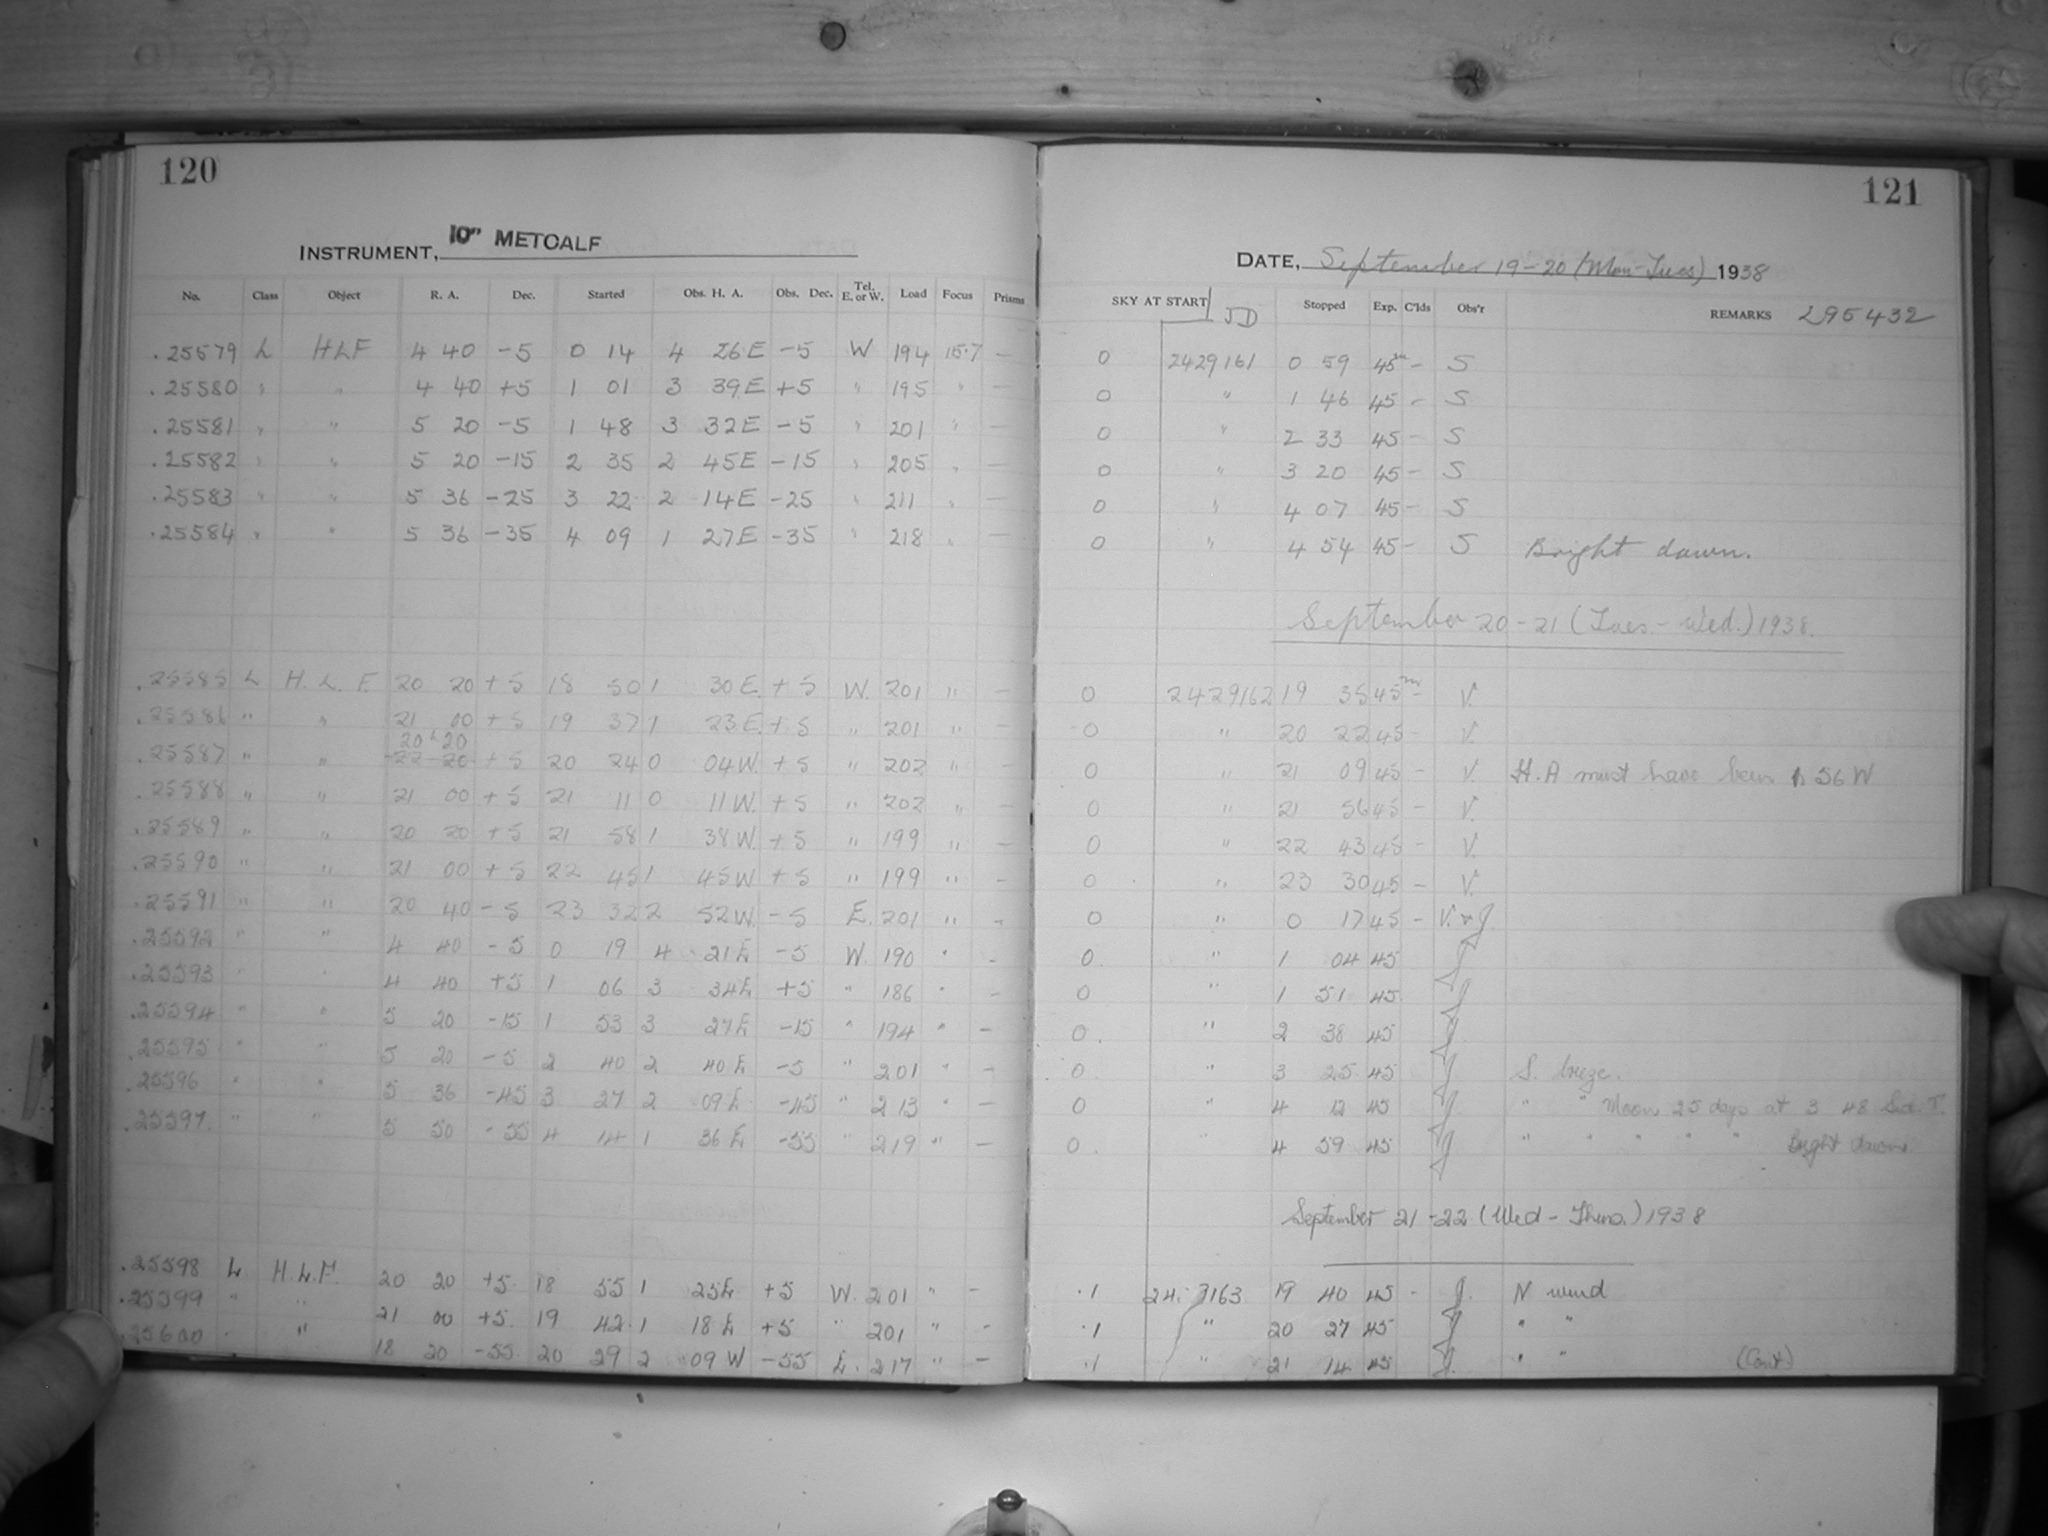 120
INSTRUMENT, 10" METCALF
No. Class Object R. A. Dec. Started Obs. H. A. Obs. Dec. Tel. E. or W. Load Focus Prisms
.25579 L HLF 4 40 -5 0 14 4 26E -5 W 194 15.7 —
.25580 " " 4 40 +5 1 01 3 39E +5 " 195 " —
.25581 " " 5 20 -5 1 48 3 32E -5 " 201 " —
.25582 " " 5 20 -15 2 35 2 45E -15 " 205 " —
.25583 " " 5 36 -25 3 22 2 14E -25 " 211 " —
.25584 " " 5 36 -35 4 09 1 27E -35 " 218 " —
.25585 L H. L. F. 20 20 +5 18 50 1 30E. +5 W. 201 " —
.25586 " " 21 00 +5 19 37 1 23E. +5 " 201 " —
20 20
.25587 " " 22 20 +5 20 24 0 04W. +5 " 202 " —
.25588 " " 21 00 +5 21 11 0 11W. +5 " 202 " —
.25589 " " 20 20 +5 21 58 1 38W. +5 " 199 " —
.25590 " " 21 00 +5 22 45 1 45W +5 " 199 " —
.25591 " " 20 40 -5 23 32 2 52W. -5 E. 201 " —
.25592 " " 4 40 -5 0 19 4 21E -5 W. 190 " —
.25593 " " 4 40 +5 1 06 3 34E +5 " 186 " —
.25594 " " 5 20 -15 1 53 3 27E -15 " 194 " —
.25595 " " 5 20 -5 2 40 2 40E -5 " 201 " —
.25596 " " 5 36 -45 3 27 2 09E -45 " 213 " —
.25597. " " 5 50 -55 4 14 1 36E -55 " 219 " —
.25598 L H.L.F. 20 20 +5 18 55 1 25E +5 W. 201 " —
.25599 " " 21 00 +5 19 42 1 18E +5 " 201 " —
.25600 " " 18 20 -55 20 29 2 09W -55 E. 217 " —
121
DATE, September 19-20 (Mon-Tues) 1938
SKY AT START JD Stopped Exp. C'lds Obs'r REMARKS 295432
0 2429161 0 59 45m — S
0 " 1 46 45 — S
0 " 2 33 45 — S
0 " 3 20 45 — S
0 " 4 07 45 — S
0 " 4 54 45 — S Bright dawn.
September 20-21 (Tues.-Wed.) 1938.
0 2429162 19 35 45m — V.
0 " 20 22 45 — V.
0 " 21 09 45 — V. H.A must have been 56 W
0 " 21 56 45 — V.
0 " 22 43 45 — V.
0 " 23 30 45 — V.
0 " 0 17 45 — V. & J.
0. " 1 04 45 J
0 " 1 51 45 J
0. " 2 38 45 J
0. " 3 25 45 J S. breeze.
0 " 4 12 45 J " " Moon 25 days at 3 48 Sid. T.
0. " 4 59 45 J " " " " " Bright dawn
September 21-22 (Wed-Thurs.) 1938
.1 3163 19 40 45 - J. N wind
.1 " 20 27 45 J " "
.1 " 21 14 45 J. " " (Cont)